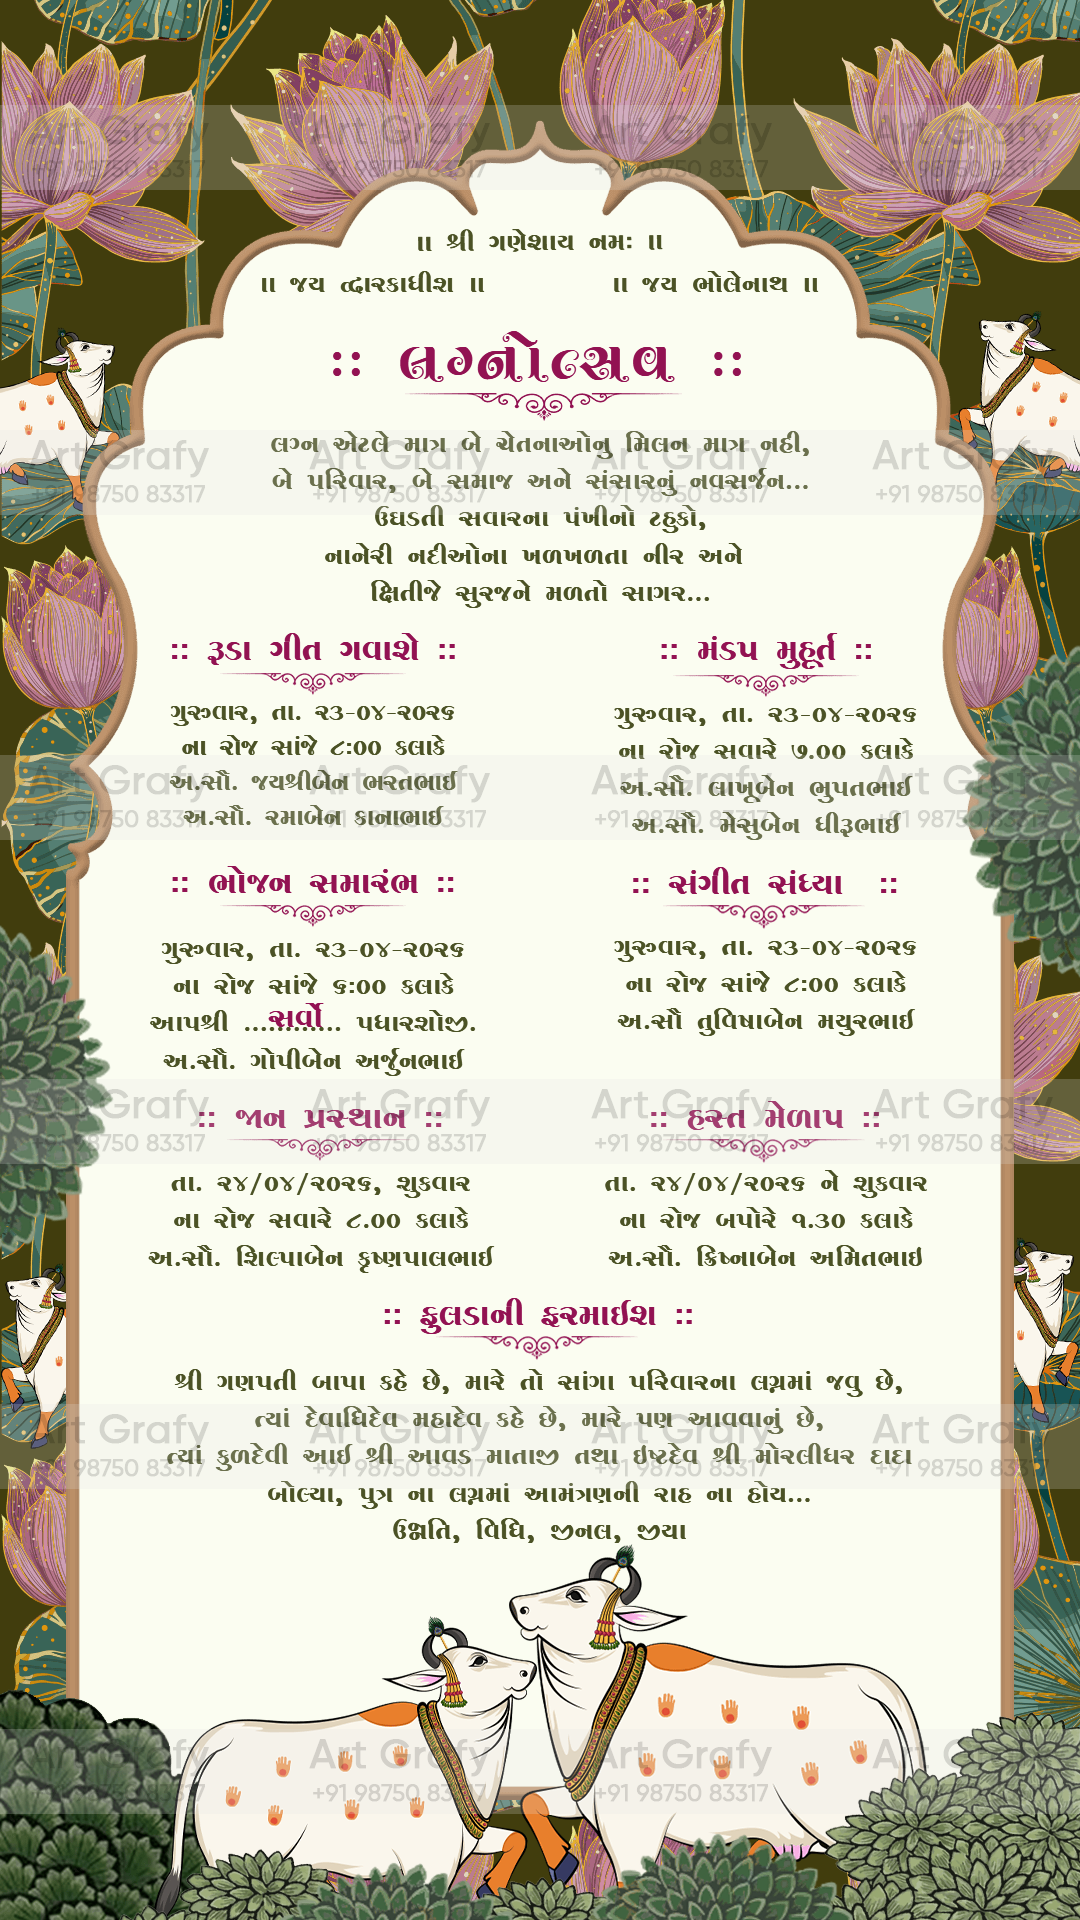 ॥ શ્રી ગણેશાય નમઃ ॥
॥ જય દ્વારકાધીશ ॥ ॥ જય ભોલેનાથ ॥
:: લગ્નોત્સવ ::
લગ્ન એટલે માત્ર બે ચેતનાઓનુ મિલન માત્ર નહી,
બે પરિવાર, બે સમાજ અને સંસારનું નવસર્જન...
ઉઘડતી સવારના પંખીનો ટહુકો,
નાનેરી નદીઓના ખળખળતા નીર અને
ક્ષિતીજે સુરજને મળતો સાગર...
:: રૂડા ગીત ગવાશે ::
ગુરુવાર, તા. ૨૩-૦૪-૨૦૨૬
ના રોજ સાંજે ૮:૦૦ કલાકે
અ.સૌ. જયશ્રીબેન ભરતભાઈ
અ.સૌ. રમાબેન કાનાભાઈ
:: મંડપ મુહૂર્ત ::
ગુરુવાર, તા. ૨૩-૦૪-૨૦૨૬
ના રોજ સવારે ૭.૦૦ કલાકે
અ.સૌ. લાખૂબેન ભુપતભાઈ
અ.સૌ. મેસુબેન ધીરૂભાઈ
:: ભોજન સમારંભ ::
ગુરુવાર, તા. ૨૩-૦૪-૨૦૨૬
ના રોજ સાંજે ૬:૦૦ કલાકે
આપશ્રી ....સર્વો.... પધારશોજી.
અ.સૌ. ગોપીબેન અર્જુનભાઈ
:: સંગીત સંધ્યા ::
ગુરુવાર, તા. ૨૩-૦૪-૨૦૨૬
ના રોજ સાંજે ૮:૦૦ કલાકે
અ.સૌ તુવિષાબેન મયુરભાઈ
:: જાન પ્રસ્થાન ::
તા. ૨૪/૦૪/૨૦૨૬, શુક્રવાર
ના રોજ સવારે ૮.૦૦ કલાકે
અ.સૌ. શિલ્પાબેન કૃષ્ણપાલભાઈ
:: હસ્ત મેળાપ ::
તા. ૨૪/૦૪/૨૦૨૬ ને શુક્રવાર
ના રોજ બપોરે ૧.૩૦ કલાકે
અ.સૌ. ક્રિષ્નાબેન અમિતભાઇ
:: ફુલડાની ફરમાઈશ ::
શ્રી ગણપતી બાપા કહે છે, મારે તો સાંગા પરિવારના લગ્નમાં જવુ છે,
ત્યાં દેવાધિદેવ મહાદેવ કહે છે, મારે પણ આવવાનું છે,
ત્યાં કુળદેવી આઈ શ્રી આવડ માતાજી તથા ઇષ્ટદેવ શ્રી મોરલીધર દાદા
બોલ્યા, પુત્ર ના લગ્નમાં આમંત્રણની રાહ ના હોય...
ઉન્નતિ, વિધિ, જીનલ, જીયા
Art Grafy
+91 98750 83317